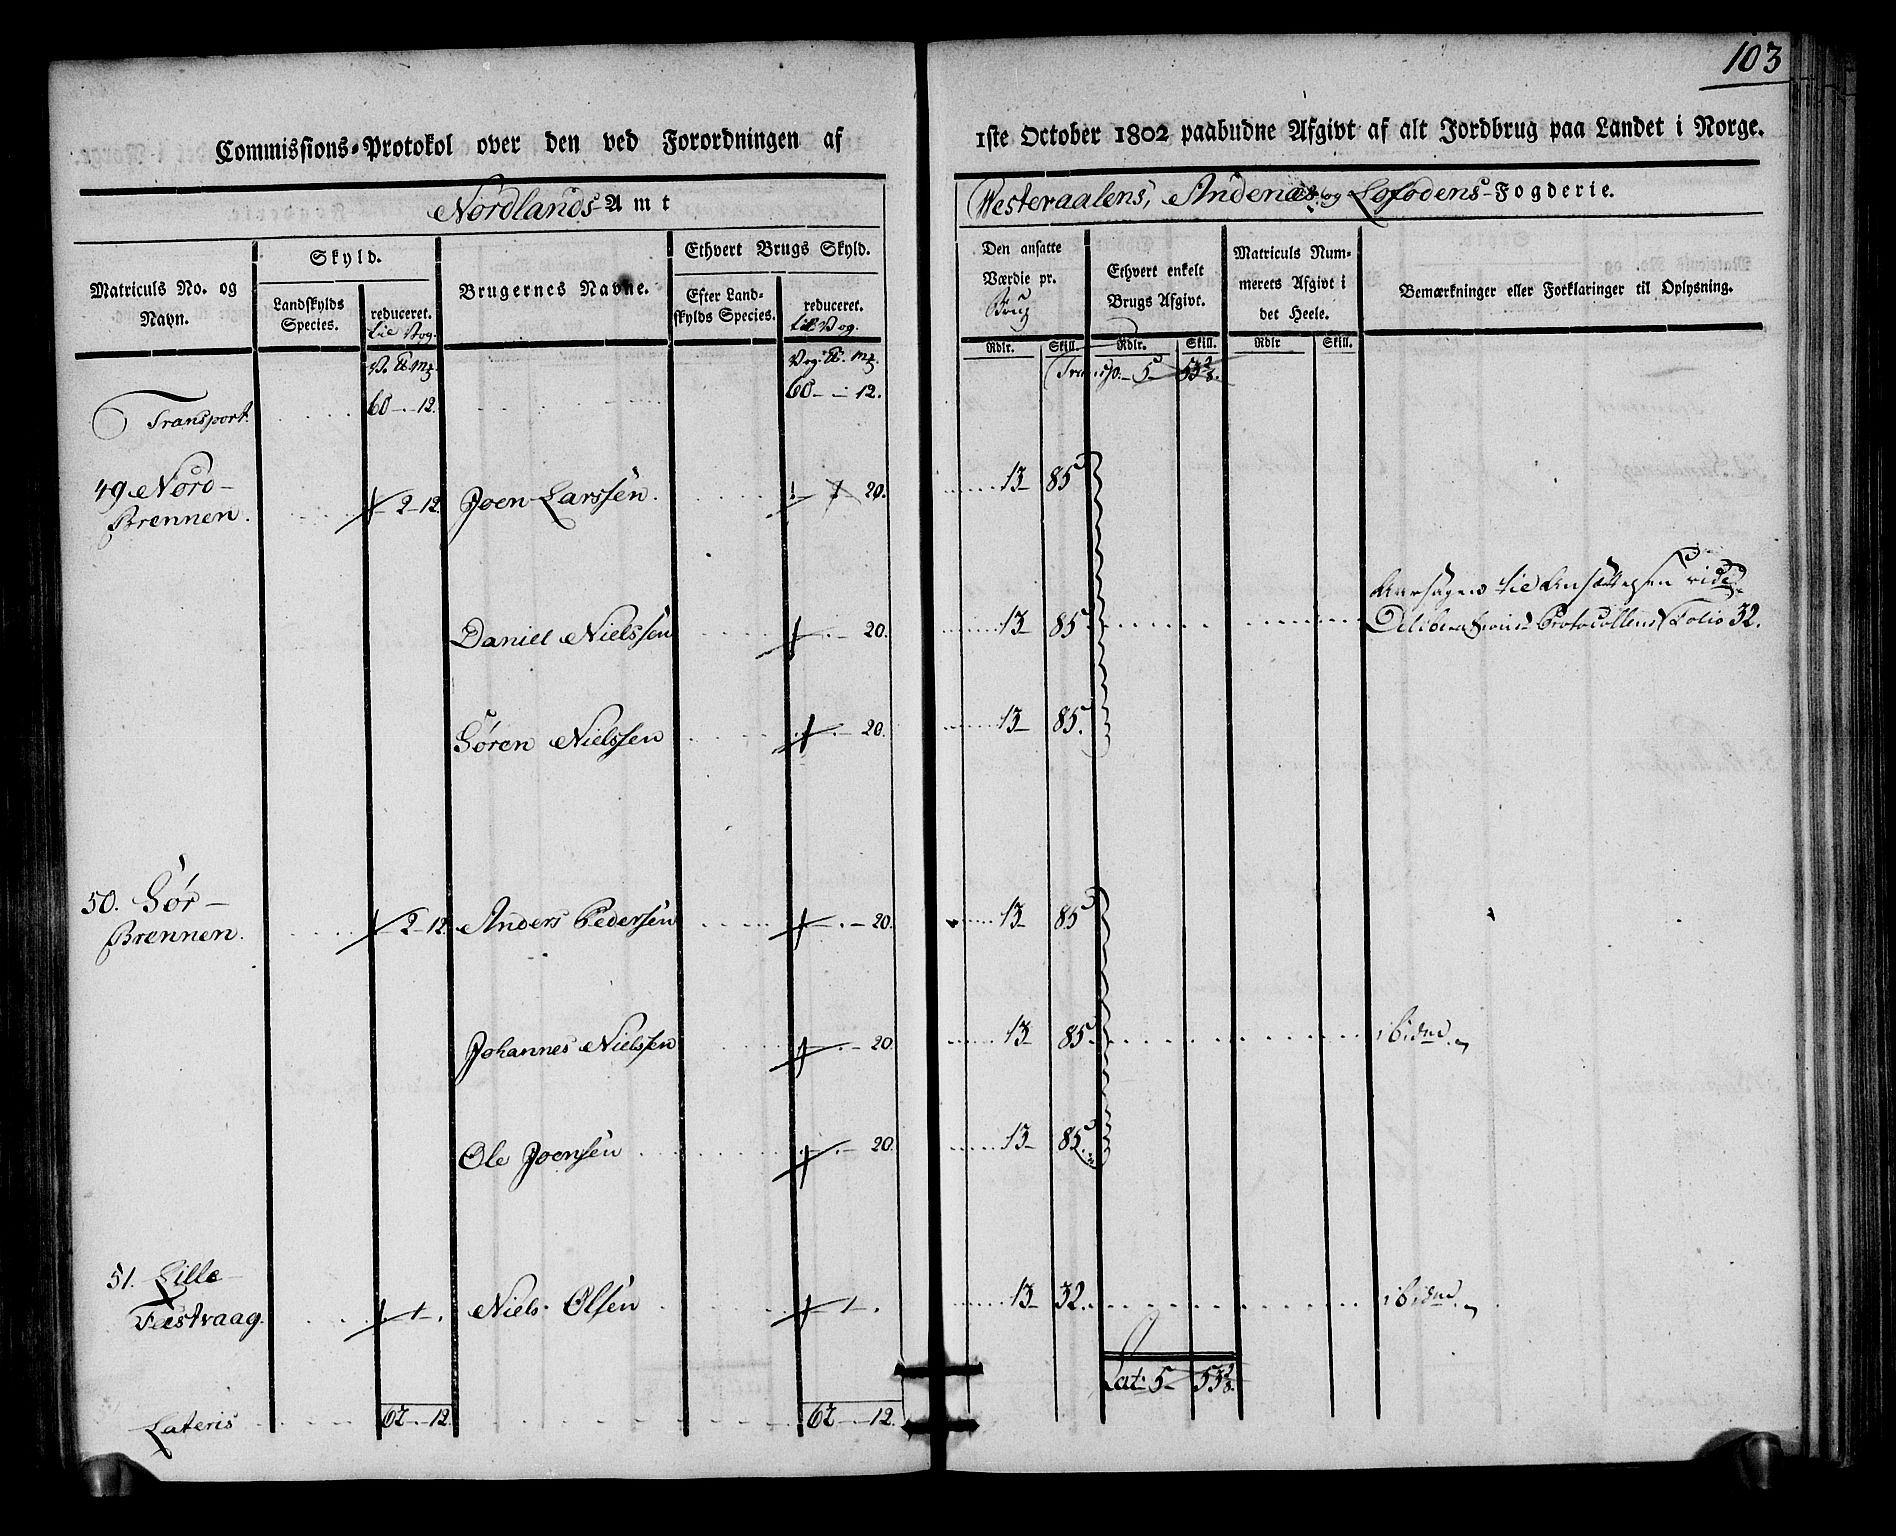 103
Commissions-Protokol over den ved Forordningen af
1ste October 1802 paabudne Afgivt af alt Jordbrug paa Landet i Norge.
Nordlands-Amt
Westeraalens, Andenæs og Lofodens-Fogderie.
Matriculs No. og Navn.
Skyld.
Landskylds Species.
reduceret. til Vog.
Brugernes Navne.
Ethvert Brugs Skyld.
Efter Landskylds Species.
reduceret. til Vog.
Den ansatte Værdie pr. Brug
Ethvert enkelt Brugs Afgivt.
Matriculs Nummerets Afgivt i det Heele.
Bemærkninger eller Forklaringer til Oplysning.
Rdlr. Skill. Rdlr. Skill. Rdlr Skill.
Transport. 60 - 12. 60 - 12. Transp. 5 53
49. Nord- Brennen. 2 - 12 Joen Larssen. 20. 13 - 85
Daniel Nielssen 20. 13 - 85
Aarsagen til Ansættelsen vide
Deliberations Protocollens Folio 32.
Sören Nielssen 20. 13 - 85.
50. Sör- Brennen. 2 - 12 Anders Pedersen 20. 13 - 85
Johannes Nielssen 20. 13 - 85. ibidm.
Ole Joensen 20. 13 - 85.
51. Lille Festvaag. 1 - . Niels Olsen 1 - . 13 - 32. ibidm.
Lateris 62 - 12. 62 - 12. Lat: 5 - 53